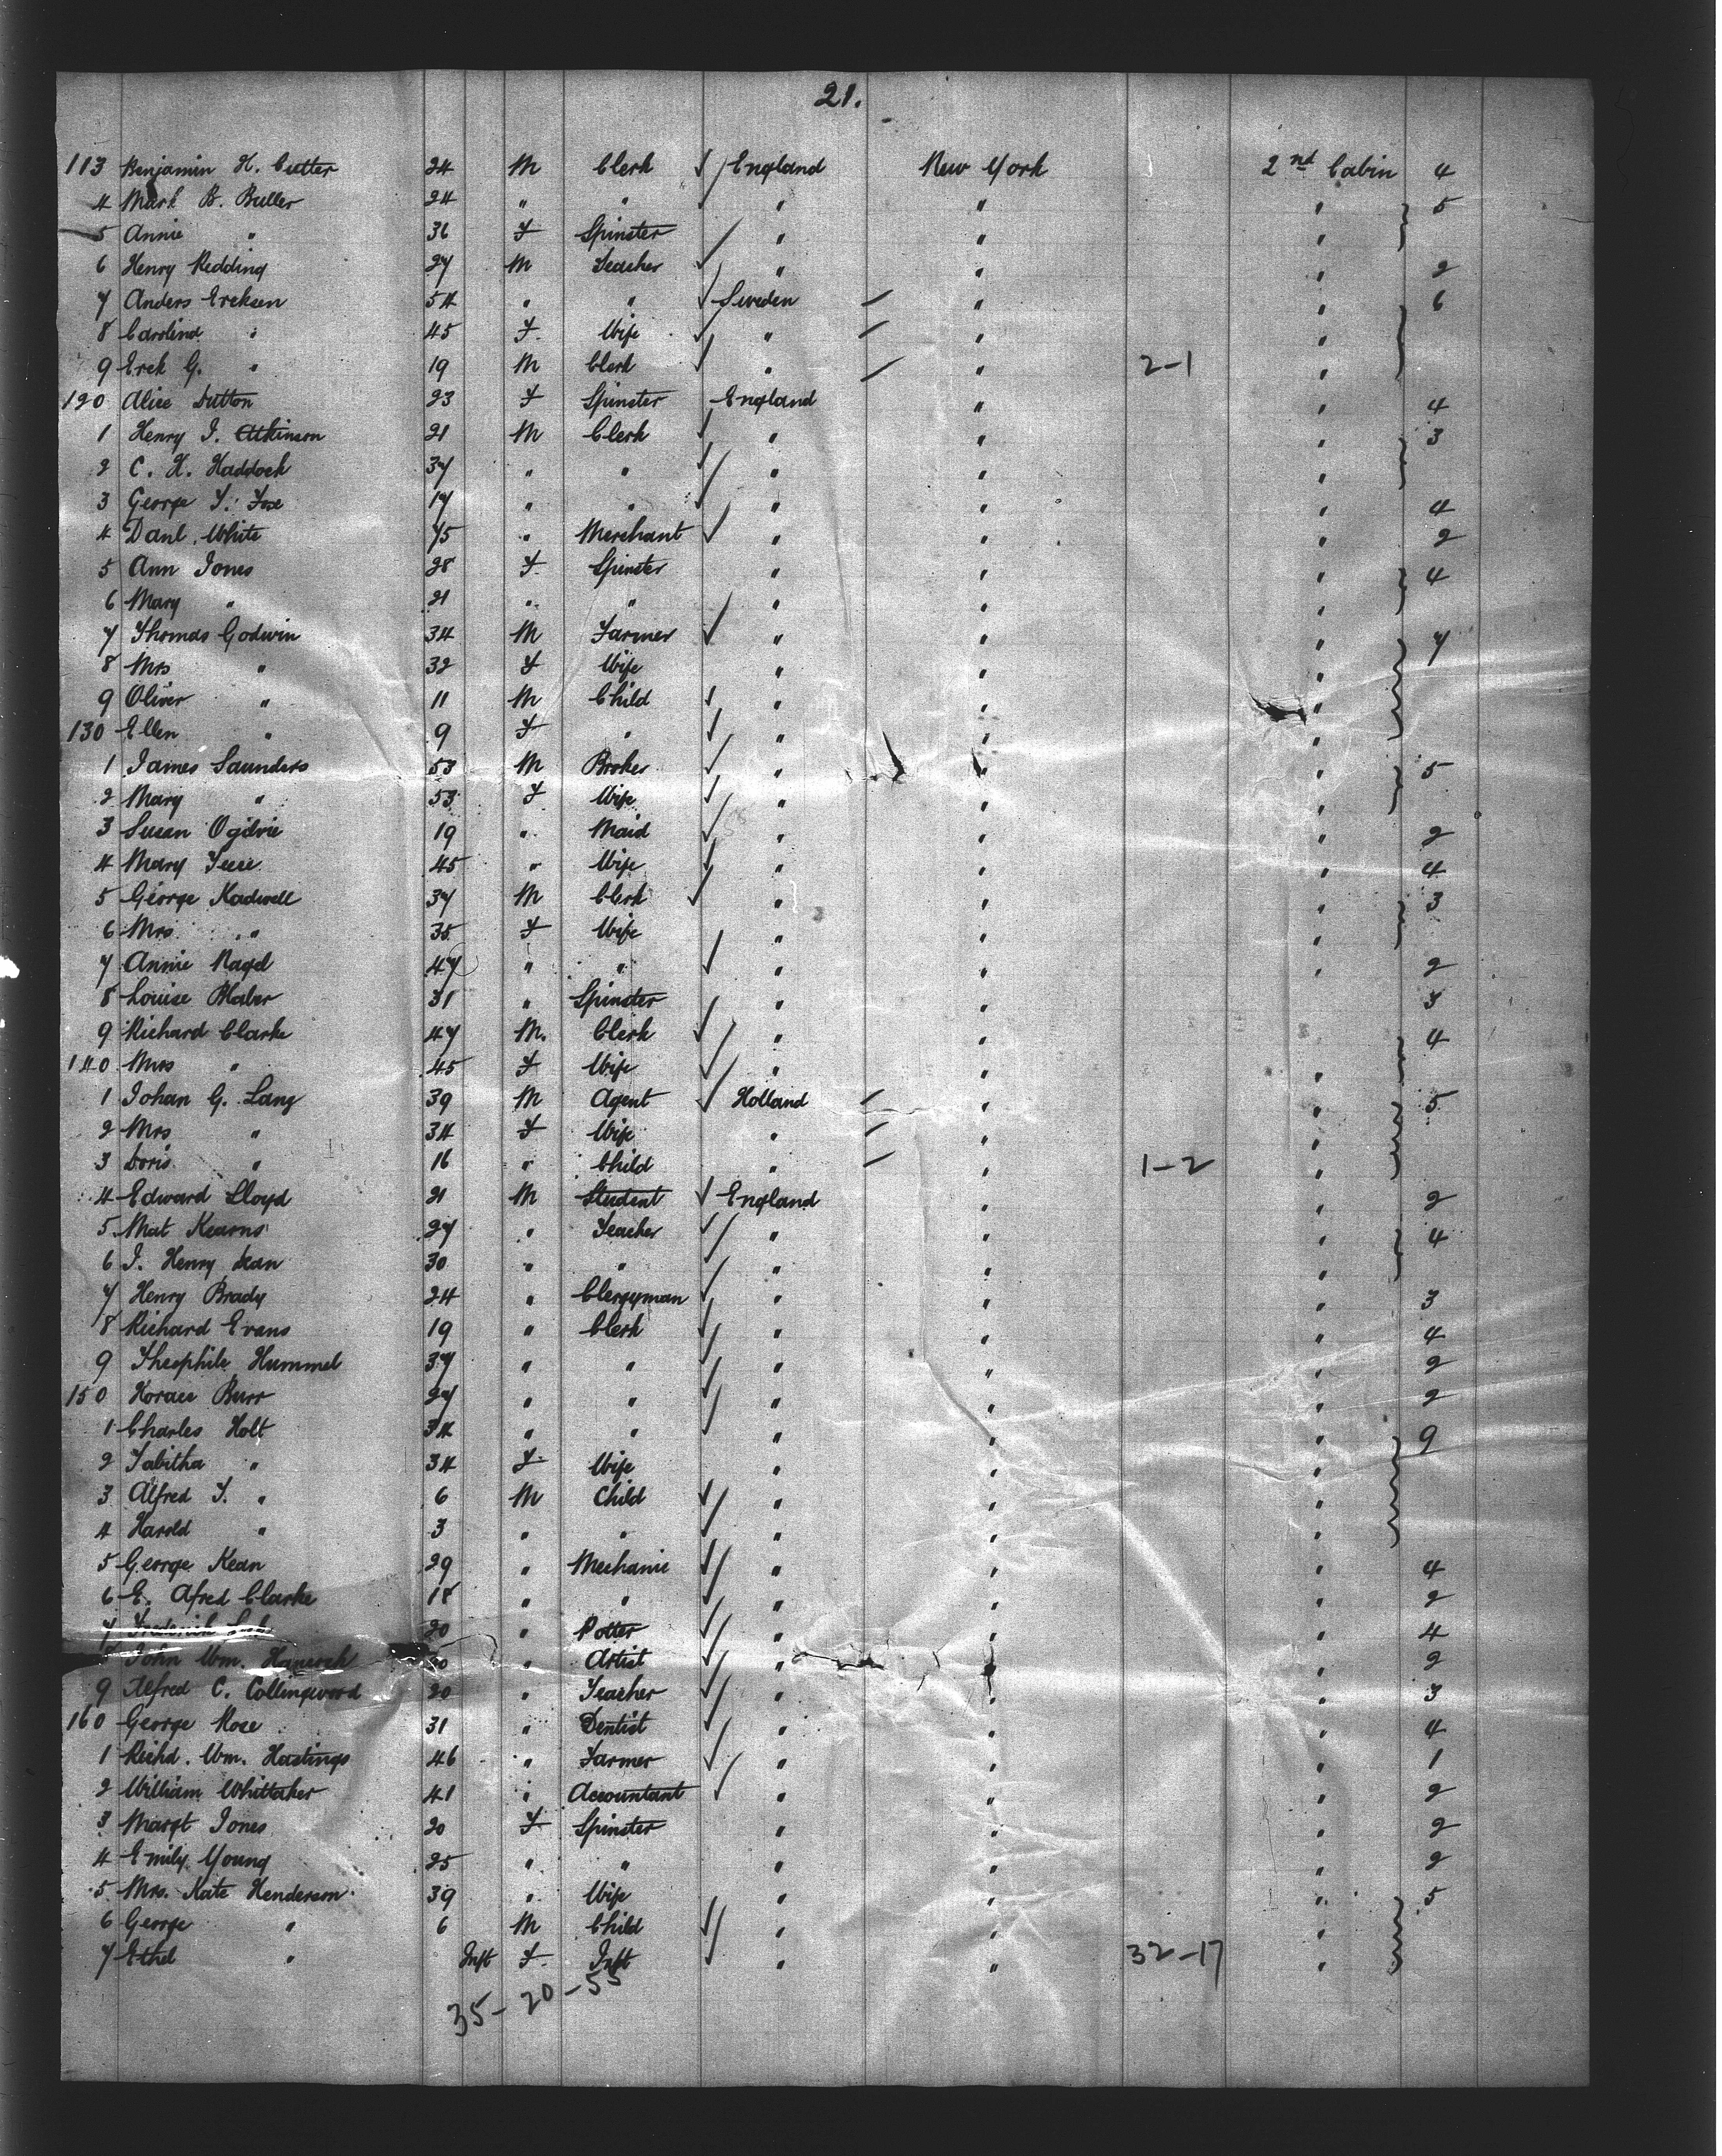 21.
113 Benjamin H. Cutter 24 M Clerk England New York 2nd Cabin 4
4 Mark B. Buller 24 " " " " " 5
5 Annie " 36 F Spinster " " "
6 Henry Redding 27 M Teacher " " " 2
7 Anders Ercksen 54 " " Sweden " " 6
8 Carolina " 45 F. Wife " " "
9 Erck G. " 19 M Clerk " " 2-1 "
120 Alice Dutton 23 F Spinster England " " 4
1 Henry J. Atkinson 21 M Clerk " " " 3
2 C. H. Haddock 37 " " " " "
3 George F. Foxe 17 " " " " " 4
4 Danl. White 45 " Merchant " " " 2
5 Ann Jones 28 F Spinster " " " 4
6 Mary " 21 " " " " "
7 Thomas Godwin 34 M Farmer " " " 7
8 Mrs " 32 F Wife " " "
9 Oliver " 11 M Child " " "
130 Ellen " 9 F " " " "
1 James Saunders 53 M Broker " " " 5
2 Mary " 53 F Wife " " "
3 Susan Ogilvie 19 " Maid " " " 2
4 Mary 45 " Wife " " " 4
5 George Kadwell 37 M Clerk " " " 3
6 Mrs " 35 F Wife " " "
7 Annie 47 " " " " " 2
8 Louise Blaber 31 " Spinster " " " 3
9 Richard Clarke 47 M. Clerk " " " 4
140 Mrs " 45 F Wife " " "
1 Johan G. Lang 39 M Agent Holland " " 5
2 Mrs " 34 F Wife " " "
3 Doris " 16 " Child " " 1-2 "
4 Edward Lloyd 21 M Student England " " 2
5 Mat Kearns 27 " Teacher " " " 4
6 J. Henry Dean 30 " " " " "
7 Henry Brady 24 " Clergyman " " " 3
8 Richard Evans 19 " Clerk " " " 4
9 Theophile Hummel 37 " " " " " 2
150 Horace Burr 27 " " " " " 2
1 Charles Holt 34 " " " " " 9
2 Tabitha " 34 F. Wife " " "
3 Alfred F. " 6 M Child " " "
4 Harold " 3 " " " " "
5 George Kean 29 " Mechanic " " " 4
6 E. Afred Clarke 18 " " " " " 2
7 Frederick 20 " Potter " " " 4
John Wm. Hancock " Artist " " " 2
9 Alfred C. Collingwood 20 " Teacher " " " 3
160 George Rose 31 " Dentist " " " 4
1 Richd. Wm. Hastings 46 " Farmer " " " 1
2 William Whittaker 41 " Accountant " " " 2
3 Margt Jones 20 F Spinster " " " 2
4 Emily Young 25 " " " " " 2
5 Mrs. Kate Henderson 39 " Wife " " " 5
6 George " 6 M Child " " "
7 Ethel " Inft F. Inft " " 32-17 "
35-20-55